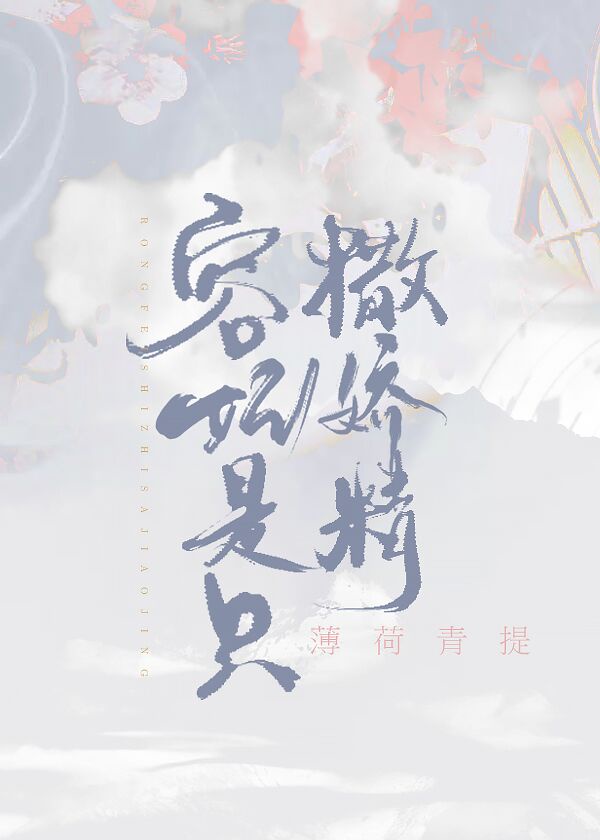 容妃是只
撒娇精
RONGFEISHIZHISAJIAOJING
薄荷青提